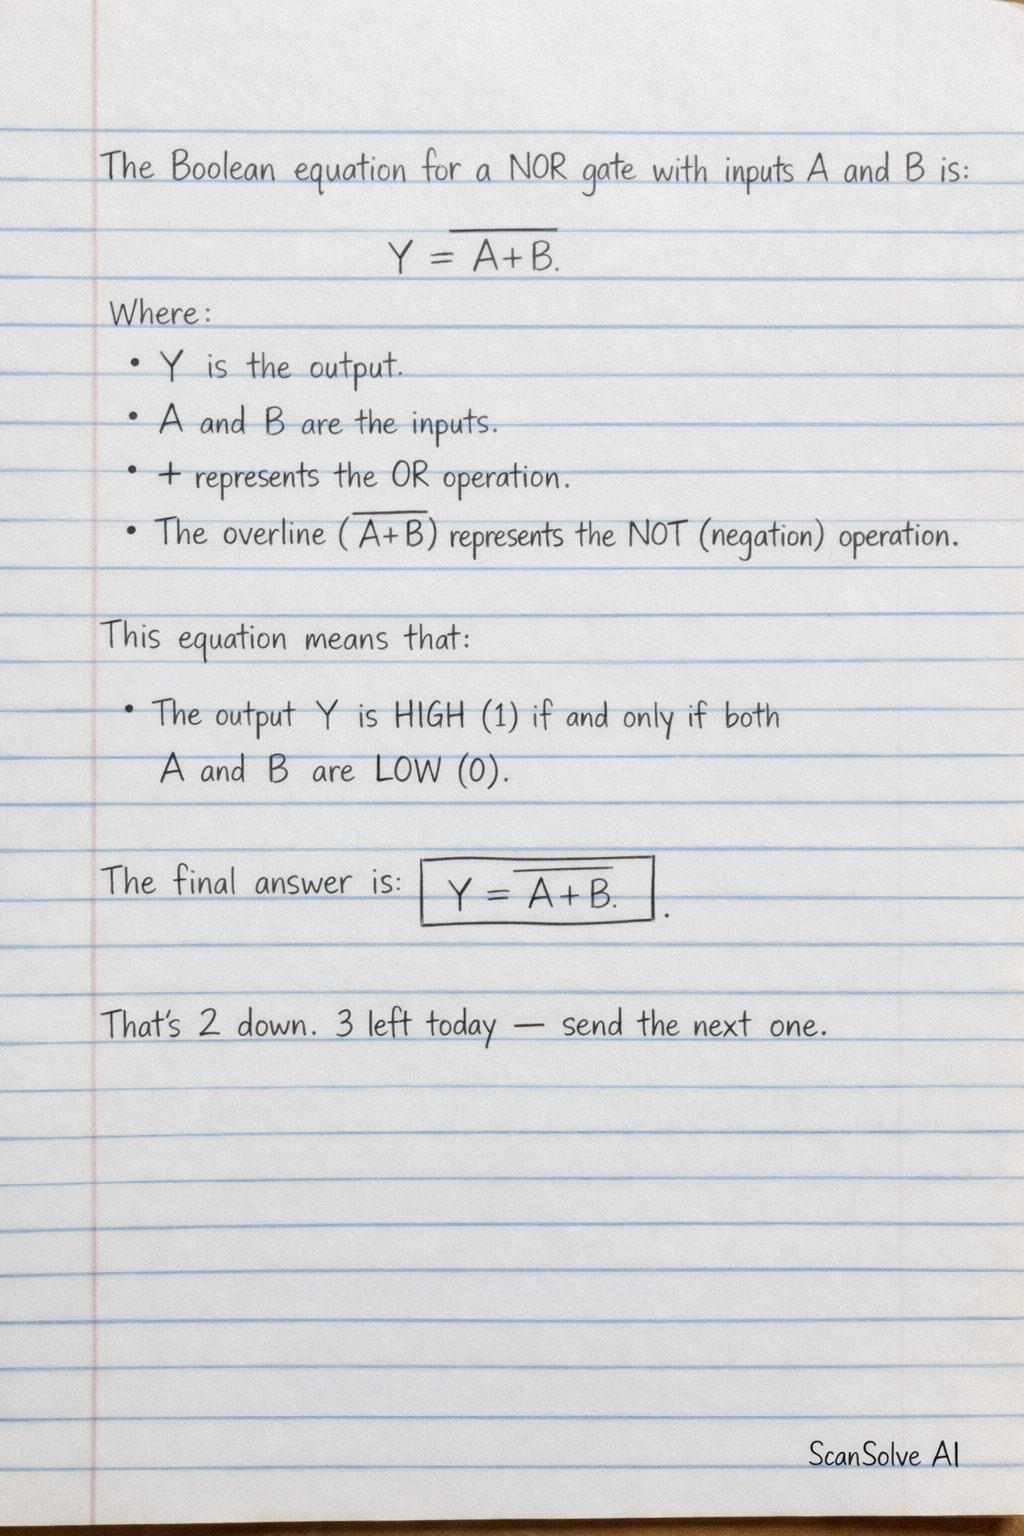 The Boolean equation for a NOR gate with inputs A and B is:
Y = A̅+̅B̅.
Where:
• Y is the output.
• A and B are the inputs.
• + represents the OR operation.
• The overline (A̅+̅B̅) represents the NOT (negation) operation.
This equation means that:
• The output Y is HIGH (1) if and only if both
A and B are LOW (0).
The final answer is: Y = A̅+̅B̅. .
That's 2 down. 3 left today — send the next one.
ScanSolve AI